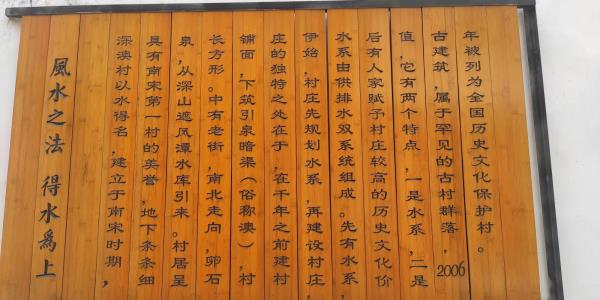 風水之法 得水爲上
深澳村以水得名,建立于南宋时期,
具有南宋第一村的美誉,地下条条细
泉,从深山遮风潭水库引来。村居呈
长方形。中有老街,南北走向,卵石
铺面,下筑引泉暗渠(俗称澳),村
庄的独特之处在于,在千年之前建村
伊始,村庄先规划水系,再建设村庄,
水系由供排水双系统组成。先有水系,
后有人家赋予村庄较高的历史文化价
值,它有两个特点,一是水系,二是
古建筑,属于罕见的古村群落,2006
年被列为全国历史文化保护村。